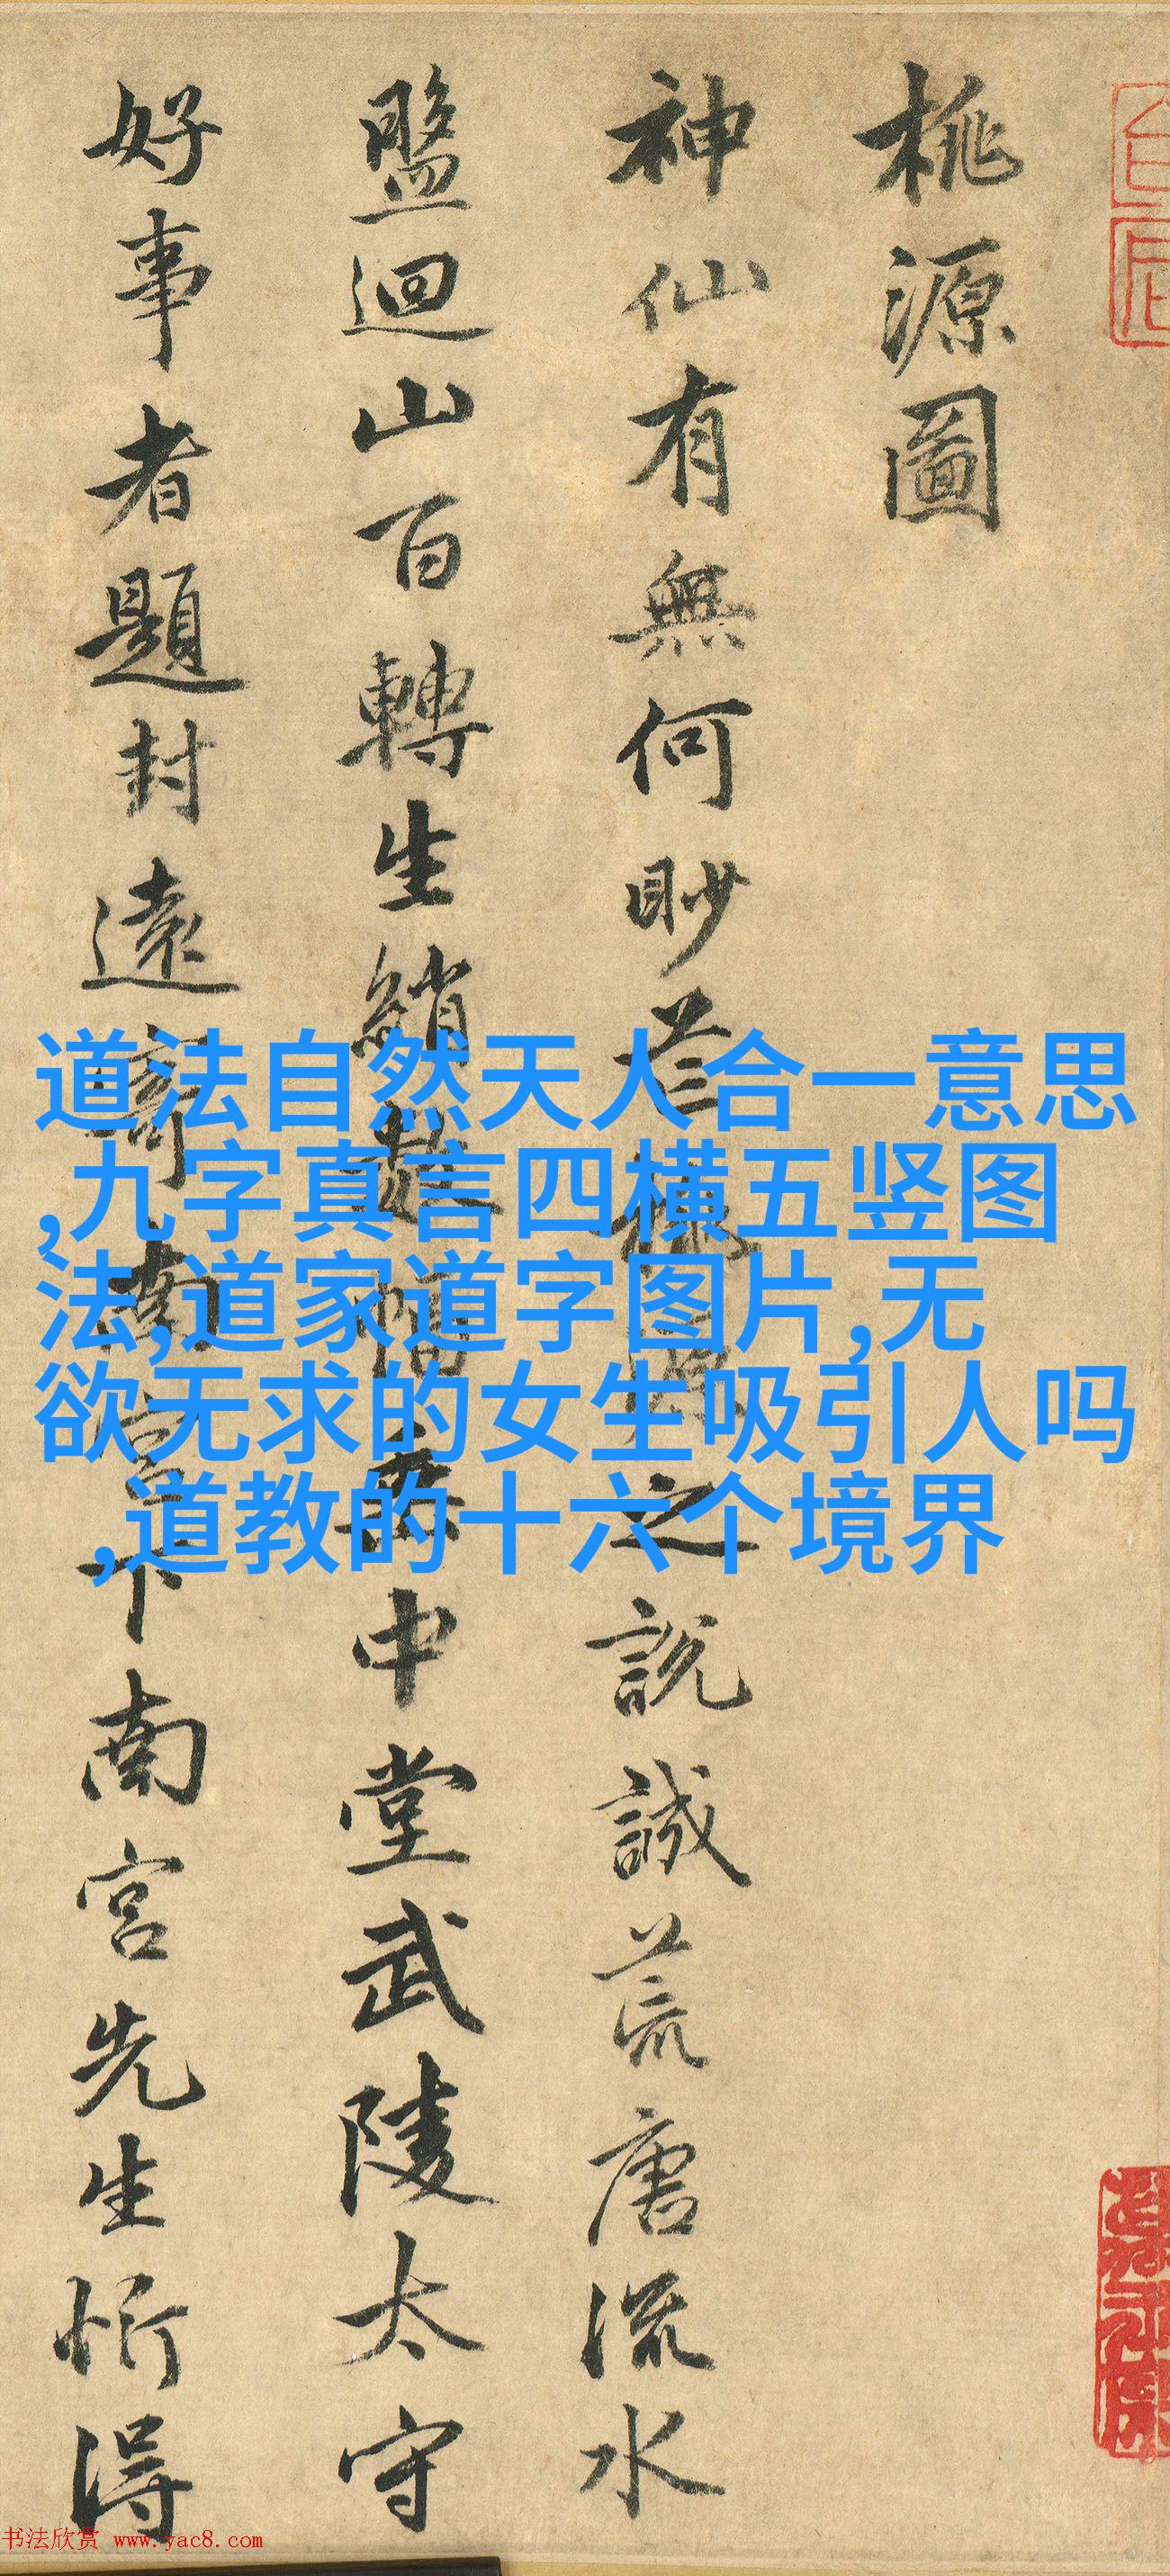 桃源圖
神仙有無何眇芒桃源之說誠荒唐流水
盤迴山百轉生綃數幅垂中堂武陵太守
好事者題封遠寄南宮下南宮先生忻得
道法自然天人合一意思
,九字真言四横五竖图
法,道家道字图片,无
欲无求的女生吸引人吗
,道教的十六个境界
书法欣赏 www.yac8.com